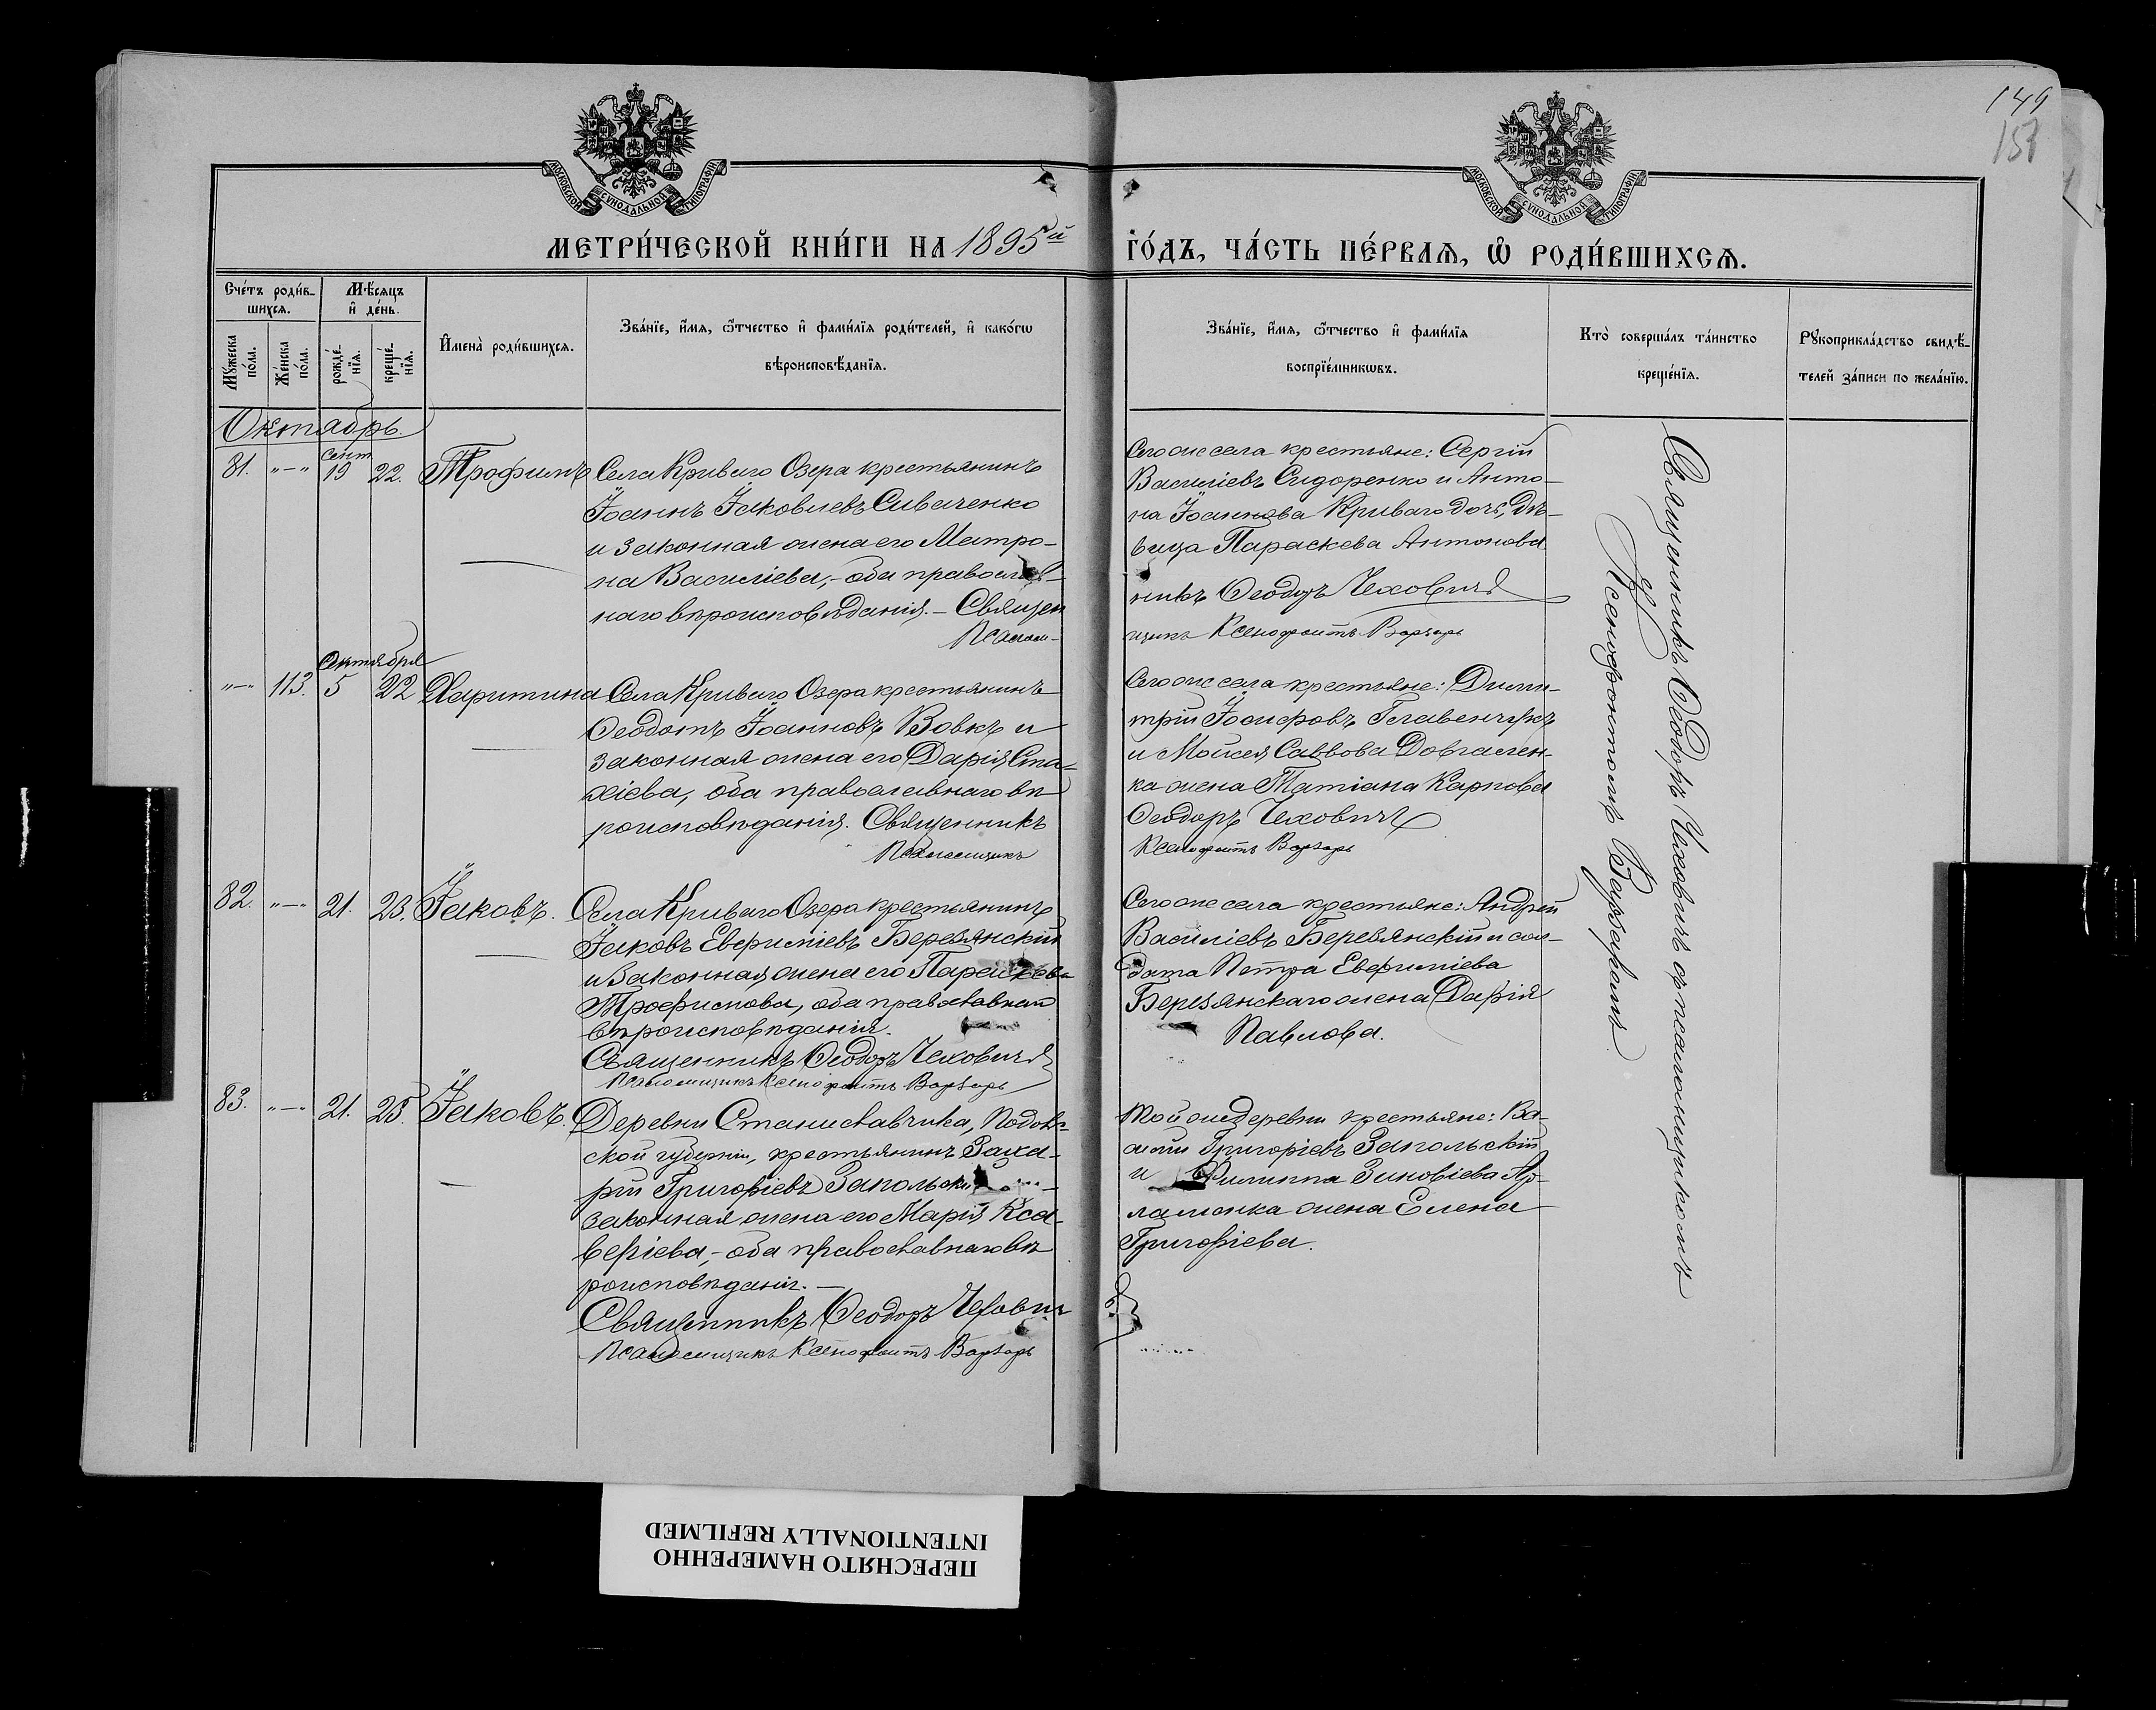 149
157
МОСКОВСКОЙ СѴНОДАЛЬНОЙ ТИПОГРАФІИ
МОСКОВСКОЙ СѴНОДАЛЬНОЙ ТИПОГРАФІИ
МЕТРИ́ЧЕСКОЙ КНИ́ГИ НА 1895й
ГО́ДЪ, ЧА́СТЬ ПЕ́РВАѦ, Ѡ РОДИ́ВШИХСѦ.
Сче́тъ роди́в-
шихсѧ.
Мѣ́сѧцъ
и҆ де́нь.
Мꙋ́жеска
по́ла.
Же́нска
по́ла.
рожде́-
нїѧ.
креще́-
нїѧ.
И҆мена̀ роди́вшихсѧ.
Зва́нїе, и҆́мѧ, ѻ҆́тчество и҆ фами́лїѧ роди́телей, и҆ како́гѡ
вѣроисповѣ́данїѧ.
Зва́нїе, и҆́мѧ, ѻ҆́тчество и҆ фами́лїѧ
воспрїе́мникѡвъ.
Кто̀ соверша́лъ та́инство
креще́нїѧ.
Рꙋкоприкла́дство свидѣ́-
телей за́писи по жела́нїю.
Октябрь.
Сент.
81. "—" 19 22. Трофимъ
Села Криваго Озера крестьянинъ
Іоаннъ Іаковлевъ Сиваченко
и законная жена его Матро-
на Василіева,- оба православ-
наго вѣроисповѣданія.- Священ
Псалом-
Сего же села крестьяне: Сергій
Василіевъ Сидоренко и Анто-
на Іоаннова Криваго дочь, дѣ-
вица Параскева Антонова.
никъ Ѳеодоръ Чеховичъ
щикъ Ксенофонтъ Варзарь
Сентября
"—" 113. 5 22 Харитина
Села Криваго Озера крестьянинъ
Ѳеодотъ Іоанновъ Вовкъ и
законная жена его Дарія Ста-
хіева, оба православнаго вѣ
роисповѣданія. Священникъ
Псаломщикъ
Сего же села крестьяне: Дими-
трій Іосифовъ Главенчукъ
и Мойсея Саввова Довгален-
ка жена Татіана Карпова
Ѳеодоръ Чеховичъ
Ксенофонтъ Варзарь
82. "—" 21. 23. Іаковъ.
Села Криваго Озера крестьянинъ
Іаковъ Евфиміевъ Березянскій
и законная жена его Параскева
Трофимова, оба православнаго
вѣроисповѣданія.
Священникъ Ѳеодоръ Чеховичъ
Псаломщикъ Ксенофонтъ Варзарь
Сего же села крестьяне: Андрей
Василіевъ Березянскій и сол-
дата Петра Евфиміева
Березянскаго жена Дарія
Павлова.
83. "—" 21. 25. Іаковъ.
Деревни Станиславчика, Подоль-
ской губерніи, крестьянинъ Заха-
рій Григоріевъ Запольскій
законная жена его Марія Кса-
веріева,- оба православнаго вѣ
роисповѣданія.-
Священникъ Ѳеодоръ Чехович
Псаломщикъ Ксенофонтъ Варзарь
Той же деревни крестьяне: Ва-
силій Григоріевъ Запольскій
и Филиппа Зиновіева
жена Елена
Григоріева.
Священникъ Ѳеодоръ Чеховичъ съ псаломщикомъ
Ксенофонтомъ Варзаремъ.
ПЕРЕСНЯТО НАМЕРЕННО
INTENTIONALLY REFILMED